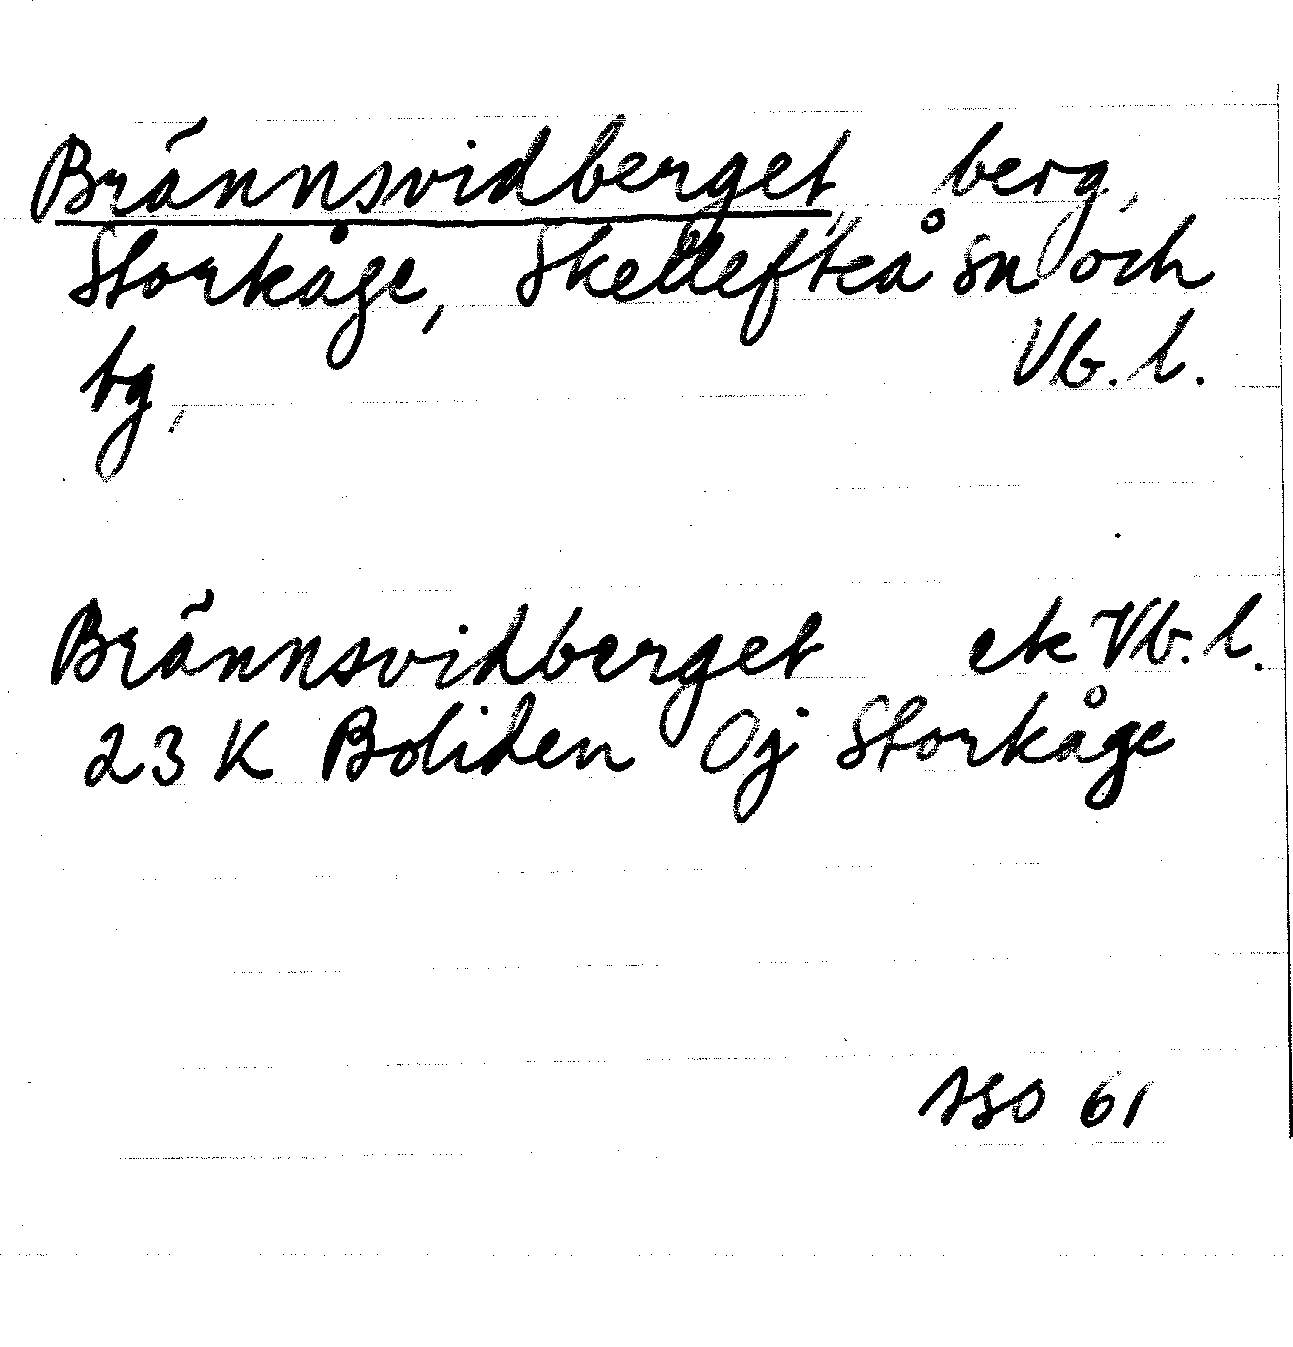 Brännsvidberget, berg,
Storkåge, Skellefteå sn och
tg, Vb. l.
Brännsvidberget ek Vb. l.
23 K Boliden Oj Storkåge
ASO 61